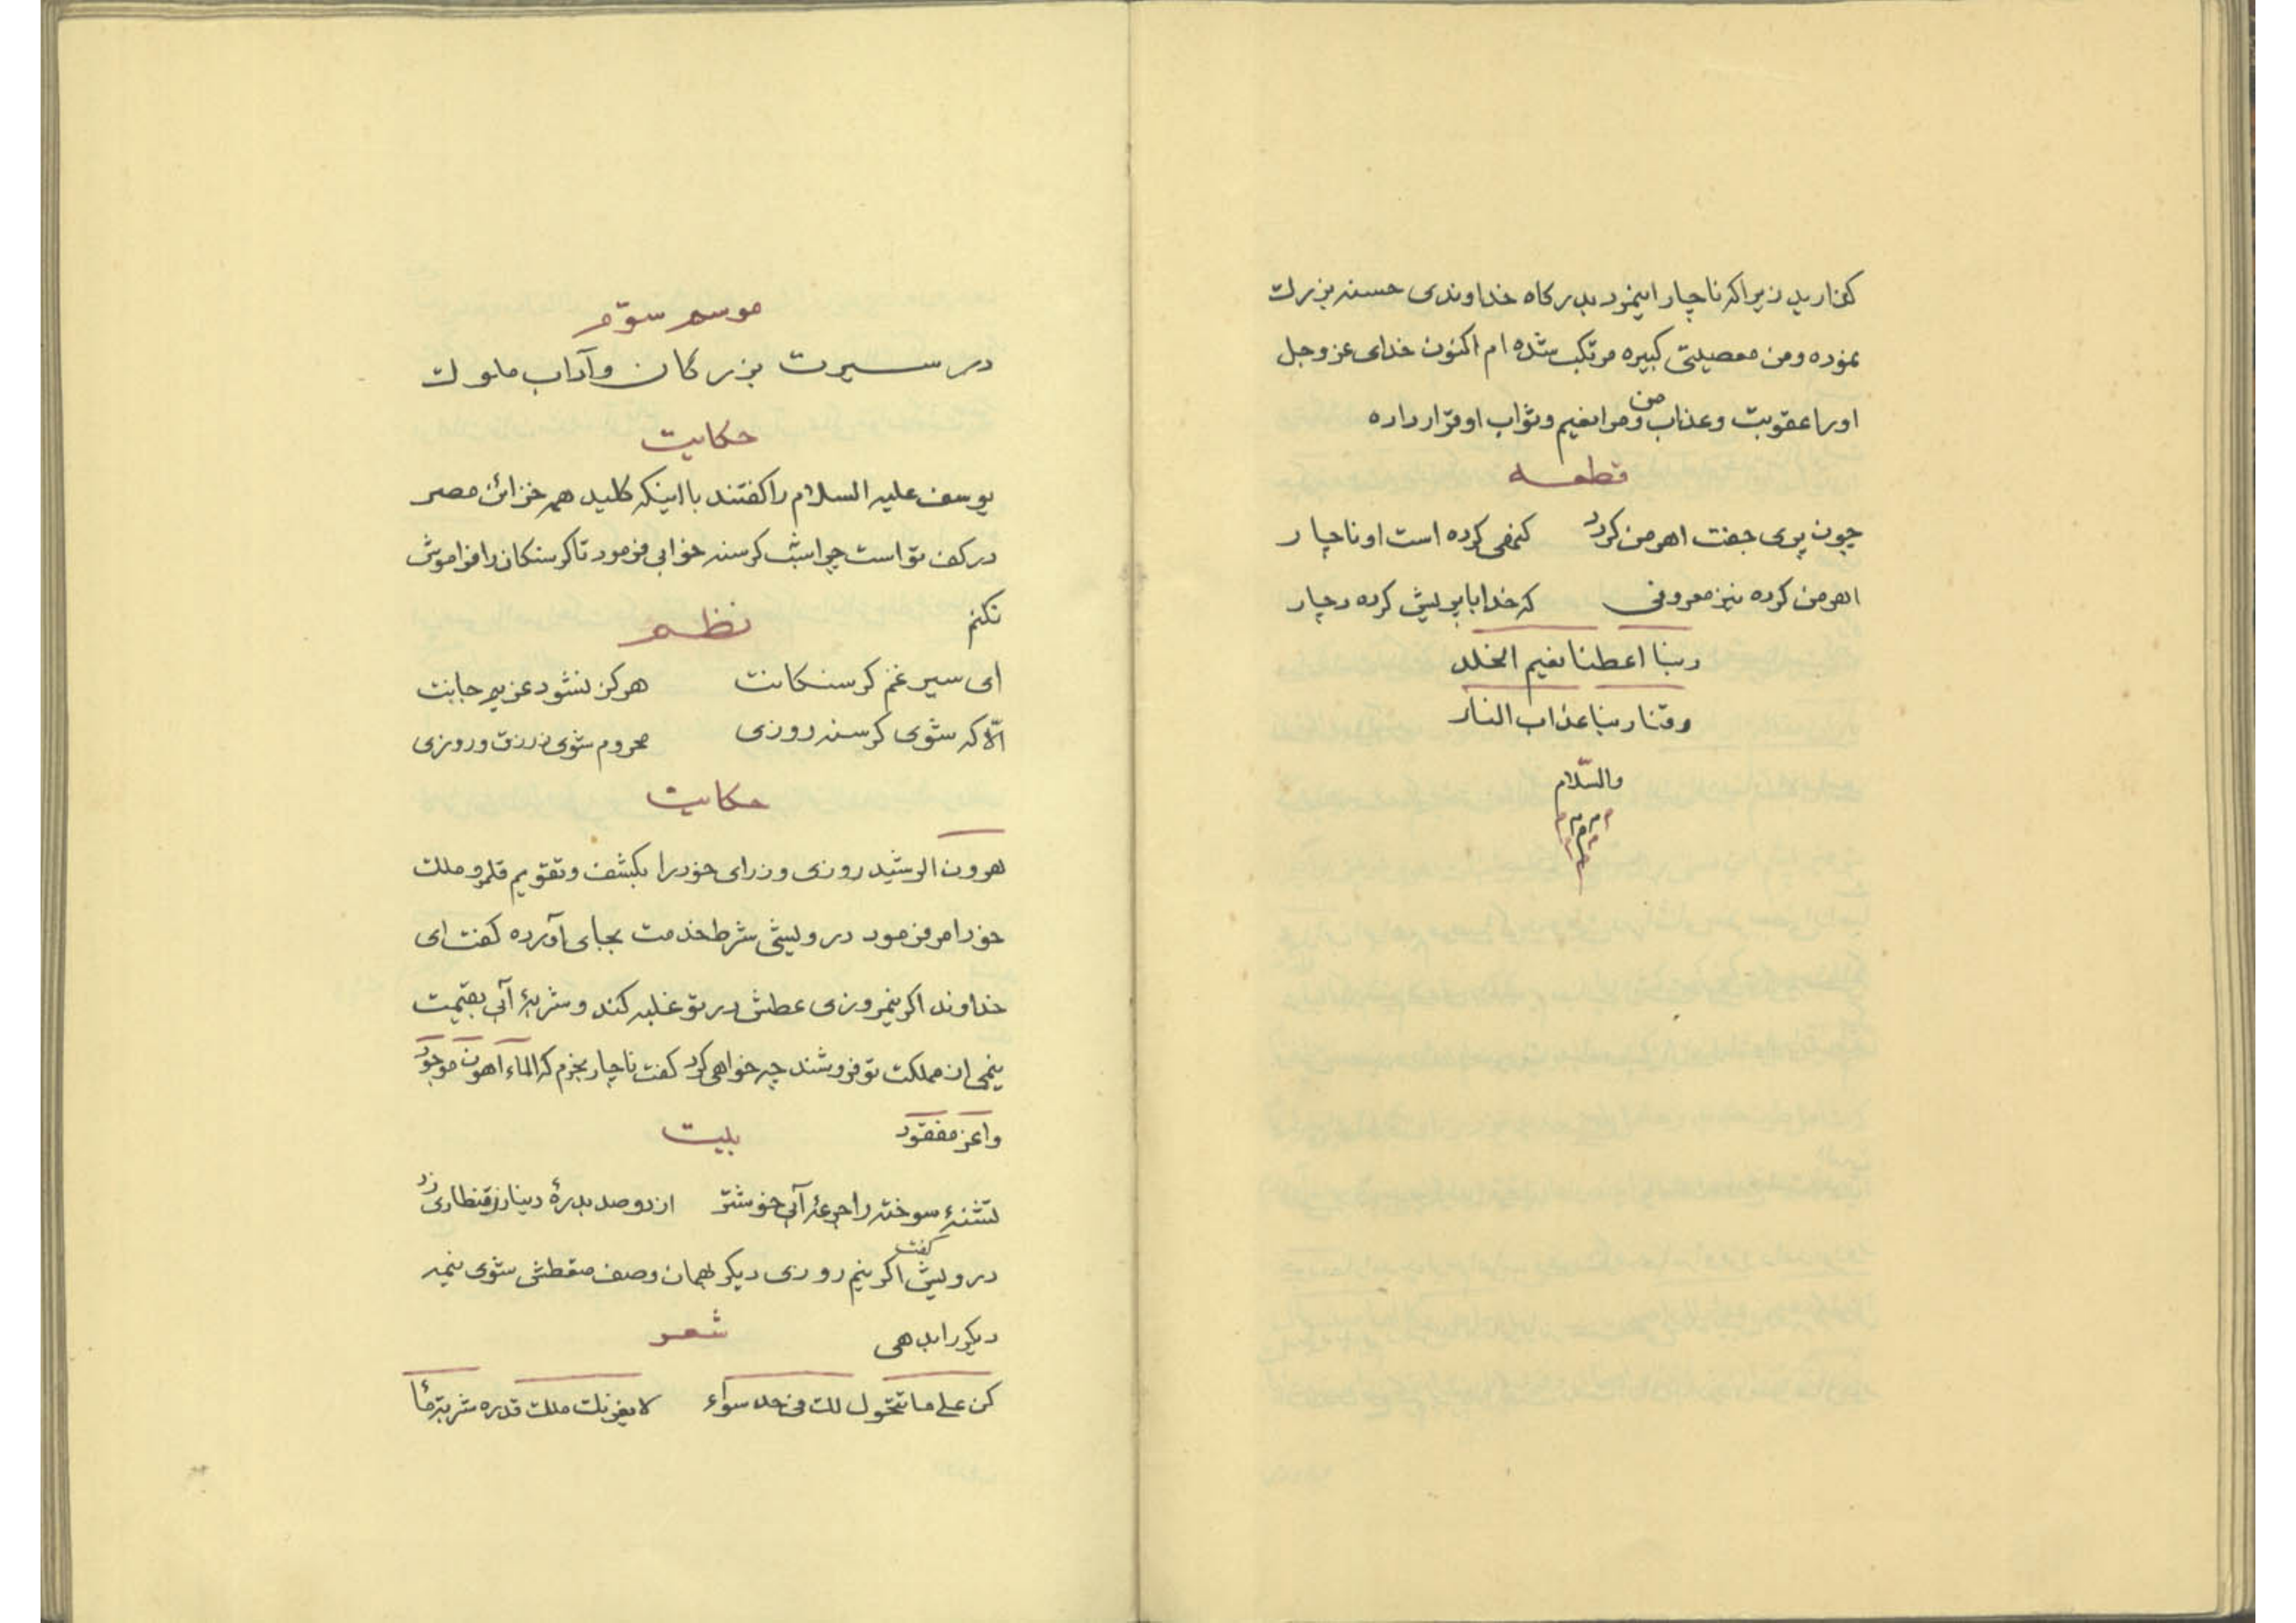 کفنارید زیراکه ناچار اینمزد بدرکاه خداوندی حسنه بزرك
نموده ومن معصیتی کبیره مرتکب شده ام اکنون خدای عز وجل
اورا عقوبت وعذاب من ومرا نعیم وثواب او قرار داده
قطعه
چون پری جفت اهرمن کردد کنهی کرده است او ناچار
اهرمن کرده نیز معروفی که خدا با پریش کرده دچار
ربنا اعطنا نعیم الخلد
وقنا ربنا عذاب النار
والسّلام
موسم سوّم
در سیرت بزرکان وآداب ملوك
حکایت
یوسف علیه السلام را کفتند با اینکه کلید همه خزائن مصر
در کف تو است چرا شب کرسنه خوابی فرمود تا کرسنکان را فراموش
نکنم
نظم
ای سیر غم کرسنکانت هرکز نشود عزیم جانت
الّا که شوی کرسنه روزی محروم شوی ز رزق وروزی
حکایت
هرون الرشید روزی وزرای خود را بکشف وتقویم قلمرو ملك
خود امر فرمود درویشی شرط خدمت بجای آورده کفت ای
خداوند اکر نیمروزی عطش در تو غلبه کند وشربهٔ آبی بقیمت
نیمی از مملکت تو فروشند چه خواهی کرد کفت ناچار بخرم که الماء اهون موجود
واعز مفقود
بیت
تشنهٔ سوخته را جرعهٔ آبی خوشتر از دو صد بدرهٔ دینار ز قنطاری زر
درویش کفت اکر نیم روزی دیکر بهمان وصف معطش شوی نیمه
دیکر را بدهی
شعر
کن علی ما تتحول لك فی حد سواء لا یغرنك ملك قدره شربة ماء